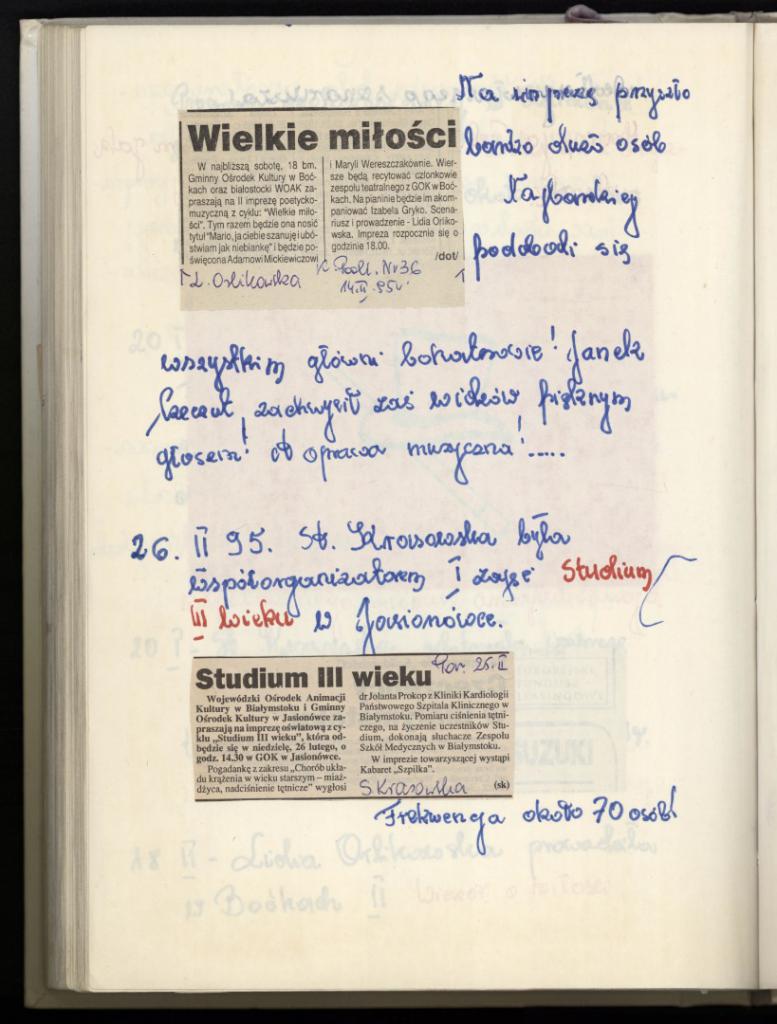 Na imprezę przyszło
bardzo dużo osób
Najbardziej
podobali się
Wielkie miłości
W najbliższą sobotę, 18 bm.
Gminny Ośrodek Kultury w Boć-
kach oraz białostocki WOAK za-
praszają na II imprezę poetycko-
muzyczną z cyklu: "Wielkie miło-
ści". Tym razem będzie ona nosić
tytuł "Mario, ja ciebie szanuję i ubó-
stwiam jak niebiankę" i będzie po-
święcona Adamowi Mickiewiczowi
i Maryli Wereszczakównie. Wier-
sze będą recytować członkowie
zespołu teatralnego z GOK w Boć-
kach. Na pianinie będzie im akom-
paniować Izabela Gryko. Scena-
riusz i prowadzenie - Lidia Orliko-
wska. Impreza rozpocznie się o
godzinie 18.00.
/dot/
L. Orlikowska
K. Podl. Nr 36
14.II.95r.
wszystkim główni bohaterowie! Janek
zachwycił zaś widzów pięknym
głosem! A oprawa muzyczna!.....
26. II 95. St. Krasowska była
współorganizatorem I zajęć Studium
III wieku w Jasionówce.
Studium III wieku
Por. 25.II
Wojewódzki Ośrodek Animacji
Kultury w Białymstoku i Gminny
Ośrodek Kultury w Jasionówce za-
praszają na imprezę oświatową z cy-
klu „Studium III wieku", która od-
będzie się w niedzielę, 26 lutego, o
godz. 14.30 w GOK w Jasionówce.
Pogadankę z zakresu „Chorób ukła-
du krążenia w wieku starszym – miaż-
dżyca, nadciśnienie tętnicze" wygłosi
dr Jolanta Prokop z Kliniki Kardiologii
Państwowego Szpitala Klinicznego w
Białymstoku. Pomiaru ciśnienia tętni-
czego, na życzenie uczestników Stu-
dium, dokonają słuchacze Zespołu
Szkół Medycznych w Białymstoku.
W imprezie towarzyszącej wystąpi
Kabaret „Szpilka".
(sk)
S Krasowska
Frekwencja około 70 osób!